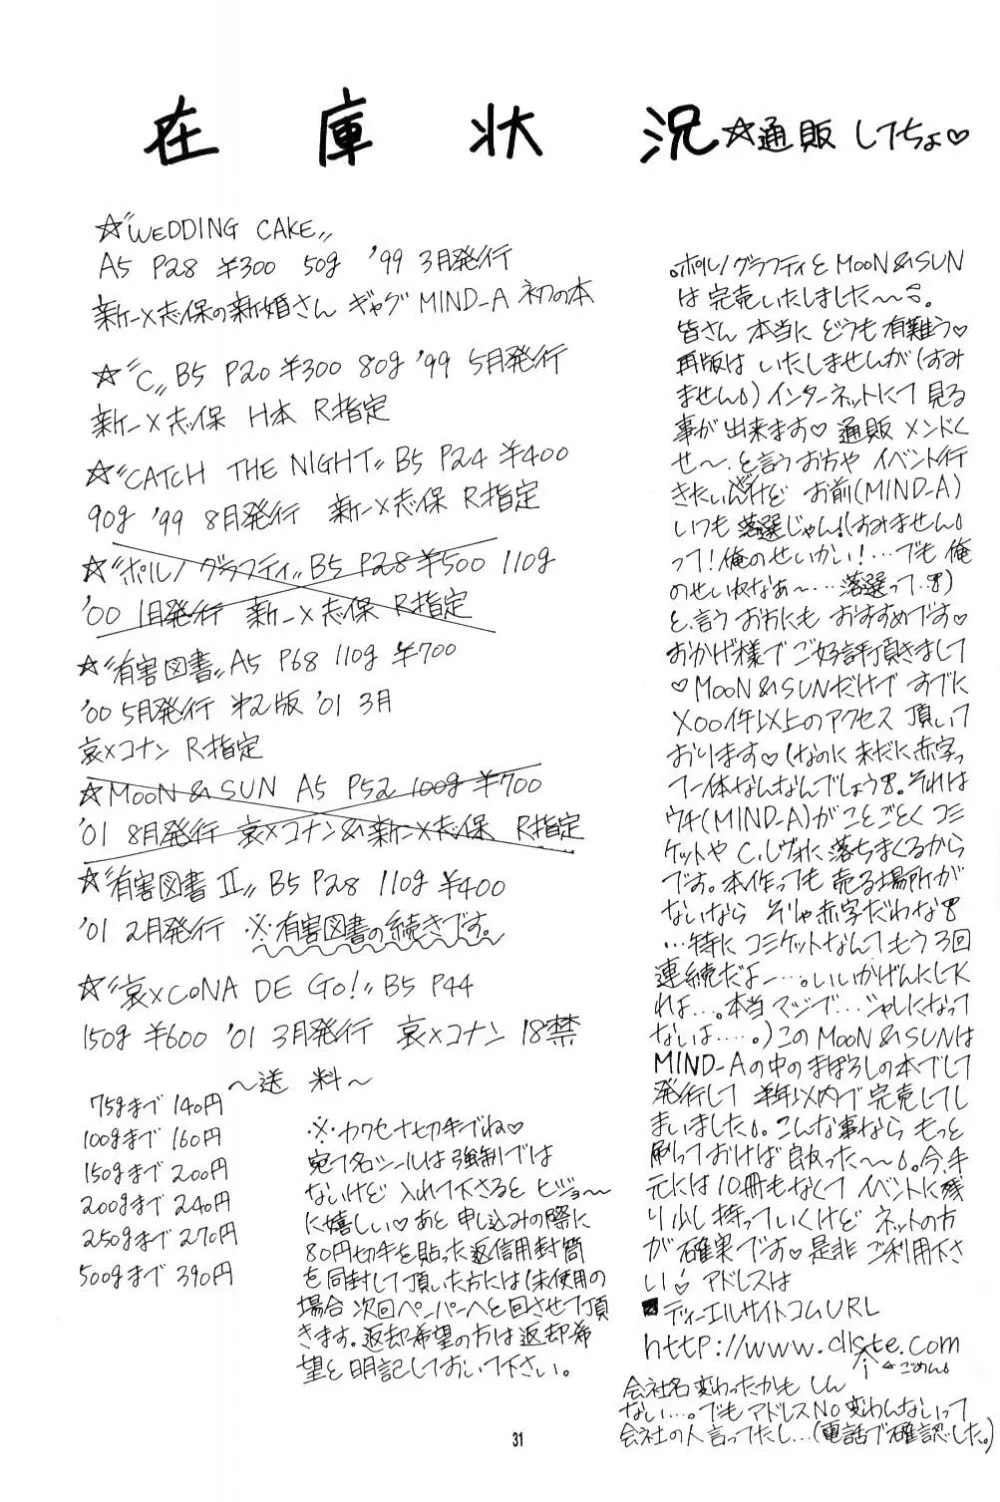 在庫状況 ☆通販してちょ♡
☆"WEDDING CAKE"
A5 P28 ¥300 50g '99 3月発行
新一×志保の新婚さん ギャグ MIND-A 初の本
☆"C" B5 P20 ¥300 80g '99 5月発行
新一×志保 H本 R指定
☆"CATCH THE NIGHT" B5 P24 ¥400
90g '99 8月発行 新一×志保 R指定
☆"ポルノグラフティ" B5 P28 ¥500 110g
'00 1月発行 新一×志保 R指定
☆"有害図書" A5 P68 110g ¥700
'00 5月発行 第2版 '01 3月
哀×コナン R指定
☆MOON & SUN A5 P52 100g ¥700
'01 8月発行 哀×コナン&新一×志保 R指定
☆"有害図書 II" B5 P28 110g ¥400
'01 2月発行 ※有害図書の続きです。
☆"哀×CONA DE GO!" B5 P44
150g ¥600 '01 3月発行 哀×コナン 18禁
〜送料〜
75gまで 140円
100gまで 160円
150gまで 200円
200gまで 240円
250gまで 270円
500gまで 390円
※カワセか切手でね♡
宛て名シールは強制では
ないけど 入れて下さると ヒジョ〜
に嬉しい♡あと 申し込みの際に
80円切手を貼った返信用封筒
を同封して頂いた方には(未使用の
場合 次回ペーパーへと回させて頂
きます。返却希望の方は返却希
望と明記しておいて下さい。
ポルノグラフティとMOON&SUN
は完売いたしました〜。
皆さん 本当に どうも有難う♡
再版は いたしませんが(すみ
ません)インターネットにて 見る
事が出来ます♡ 通販 メンドく
せ〜。と言うお方や イベント行
きたいんだけど お前(MIND-A)
いつも 落選じゃん!(すみません
って!俺のせいかい!…でも 俺
のせいねなぁ〜…落選って)
と、言うお方にも おすすめです♡
おかげ様で ご好評頂きまして
♡MOON&SUNだけで すでに
×00件以上のアクセス 頂いて
おります♡(なのに 未だに赤字っ
て一体なんなんでしょう。それは
ウチ(MIND-A)が ことごとく コミ
ケットや C.レヴォに 落ちまくるから
です。本作っても 売る場所が
ないなら そりゃ赤字だわな
…特に コミケットなんて もう3回
連続だよー…。いいかげんにしてく
れよ…。本当 マジで…シャレになって
ないよ……。)この MOON&SUNは
MIND-Aの中の まぼろしの本でして
発行して 半年以内で 完売してし
まいました。こんな事なら もっと
刷っておけば 良かった〜。今、手
元には 10冊もなくて イベントに残
り少し持っていくけど ネットの方
が 確実です♡是非 ご利用下さ
い♡アドレスは
■ディーエルサイトコムURL
http://www.dlsite.com
ごめん
会社名変わったかもしん
ない…。でもアドレスNo変わんないって
会社の人言ってたし…(電話で確認した。)
31